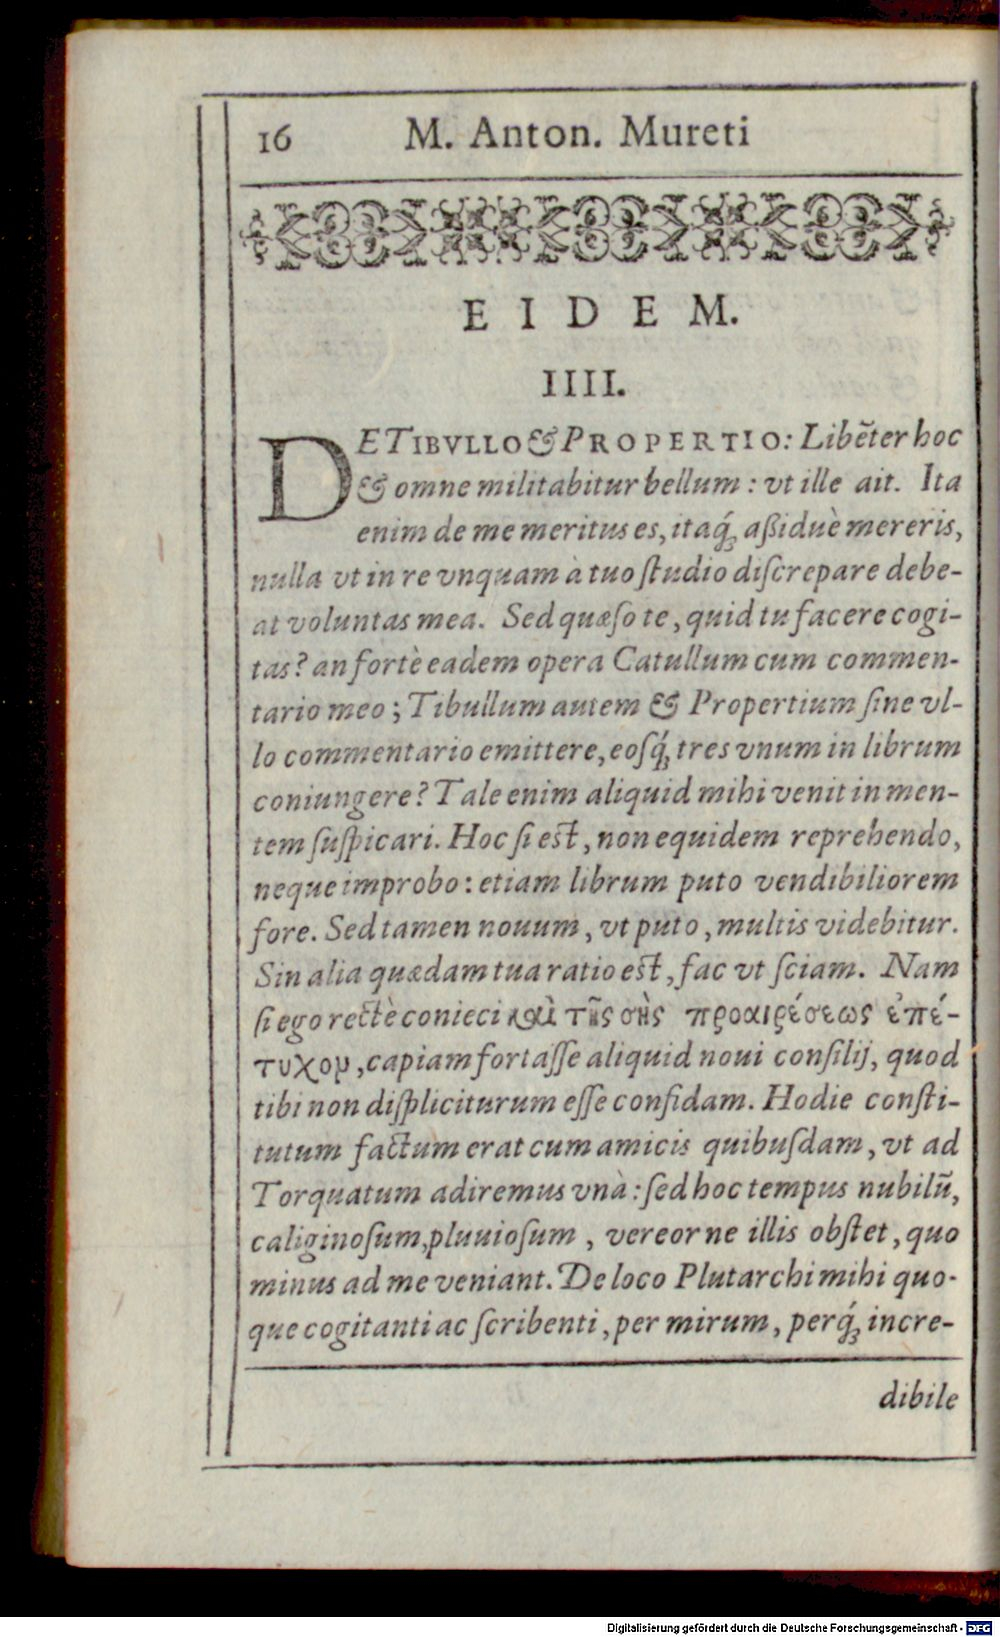 16 M. Anton. Mureti
EIDEM.
IIII.
DE TIBVLLO & PROPERTIO: Libẽter hoc
& omne militabitur bellum: vt ille ait. Ita
enim de me meritus es, itaq́; aßiduè mereris,
nulla vt in re vnquam à tuo ſtudio diſcrepare debe-
at voluntas mea. Sed quæſo te, quid tu facere cogi-
tas? an fortè eadem opera Catullum cum commen-
tario meo; Tibullum autem & Propertium ſine vl-
lo commentario emittere, eoſq́; tres vnum in librum
coniungere? Tale enim aliquid mihi venit in men-
tem ſuſpicari. Hoc ſi eſt, non equidem reprehendo,
neque improbo: etiam librum puto vendibiliorem
fore. Sed tamen nouum, vt puto, multis videbitur.
Sin alia quædam tua ratio eſt, fac vt ſciam. Nam
ſi ego rectè conieci καὶ τῆς σῆς προαιρέσεως ἐπέ-
τυχον, capiam fortaſſe aliquid noui conſilij, quod
tibi non diſpliciturum eſſe confidam. Hodie conſti-
tutum factum erat cum amicis quibuſdam, vt ad
Torquatum adiremus vnà: ſed hoc tempus nubilũ,
caliginoſum, pluuioſum, vereor ne illis obſtet, quo
minus ad me veniant. De loco Plutarchi mihi quo-
que cogitanti ac ſcribenti, per mirum, perq́; incre-
dibile
Digitalisierung gefördert durch die Deutsche Forschungsgemeinschaft - DFG